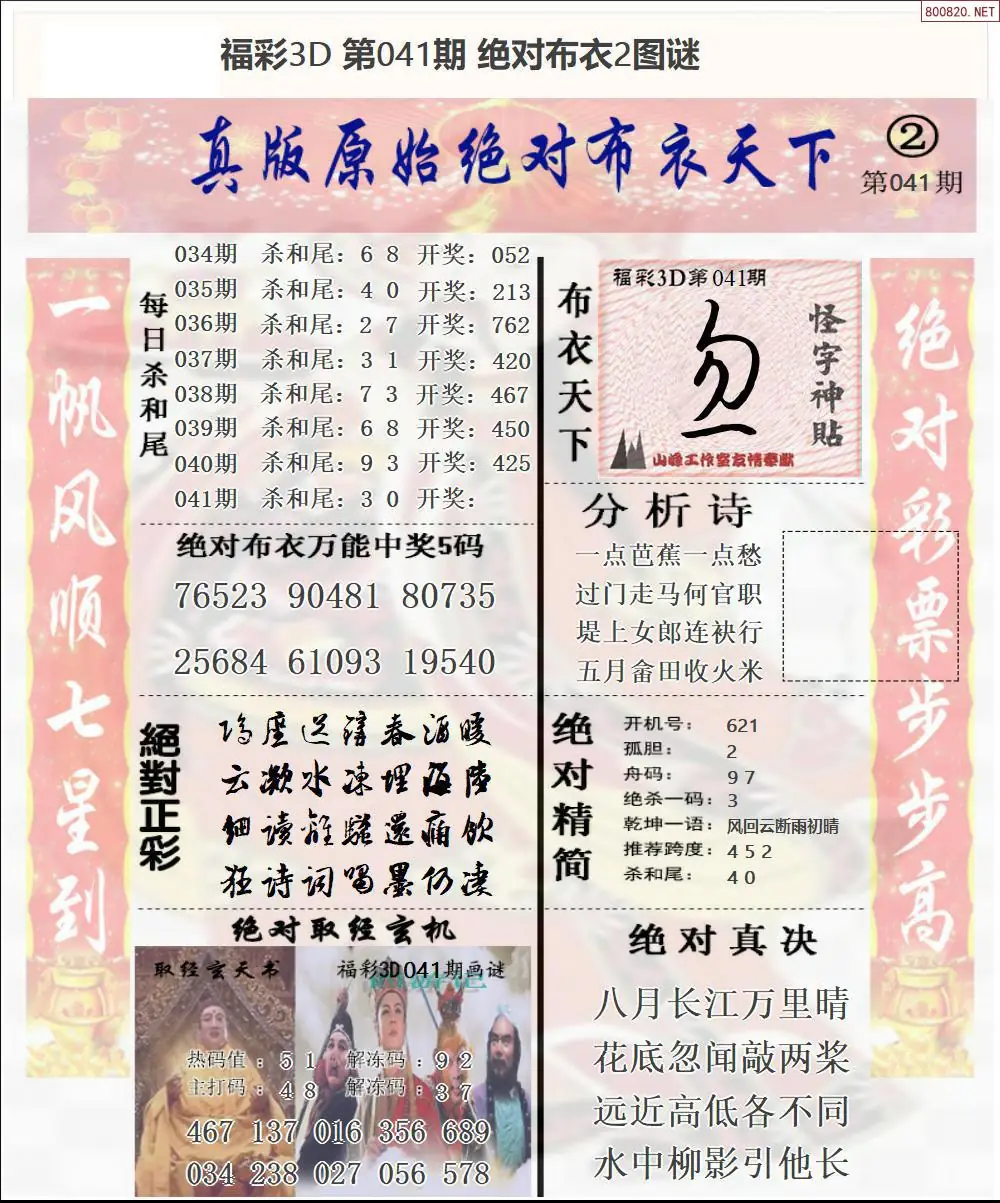 800820.NET
福彩3D 第041期 绝对布衣2图谜
真版原始绝对布衣天下
②
第041期
一帆风顺七星到
每日杀和尾
034期 杀和尾：6 8 开奖：052
035期 杀和尾：4 0 开奖：213
036期 杀和尾：2 7 开奖：762
037期 杀和尾：3 1 开奖：420
038期 杀和尾：7 3 开奖：467
039期 杀和尾：6 8 开奖：450
040期 杀和尾：9 3 开奖：425
041期 杀和尾：3 0 开奖：
绝对布衣万能中奖5码
76523 90481 80735
25684 61093 19540
絕對正彩
云凝水凍埋海陸
細讀離騷還痛饮
狂诗词喝墨仍凄
绝对取经玄机
取经玄天书
福彩3D041期画谜
热码值：5 1 解冻码：9 2
主打码：4 8 解冻码：3 7
467 137 016 356 689
034 238 027 056 578
布衣天下
福彩3D第041期
怪字神貼
山峰工作室友情奉献
分析诗
一点芭蕉一点愁
过门走马何官职
堤上女郎连袂行
五月畲田收火米
绝对精简
开机号： 621
孤胆： 2
舟码： 9 7
绝杀一码：3
乾坤一语：风回云断雨初晴
推荐跨度：4 5 2
杀和尾： 4 0
绝对真决
八月长江万里晴
花底忽闻敲两桨
远近高低各不同
水中柳影引他长
绝对彩票步步高